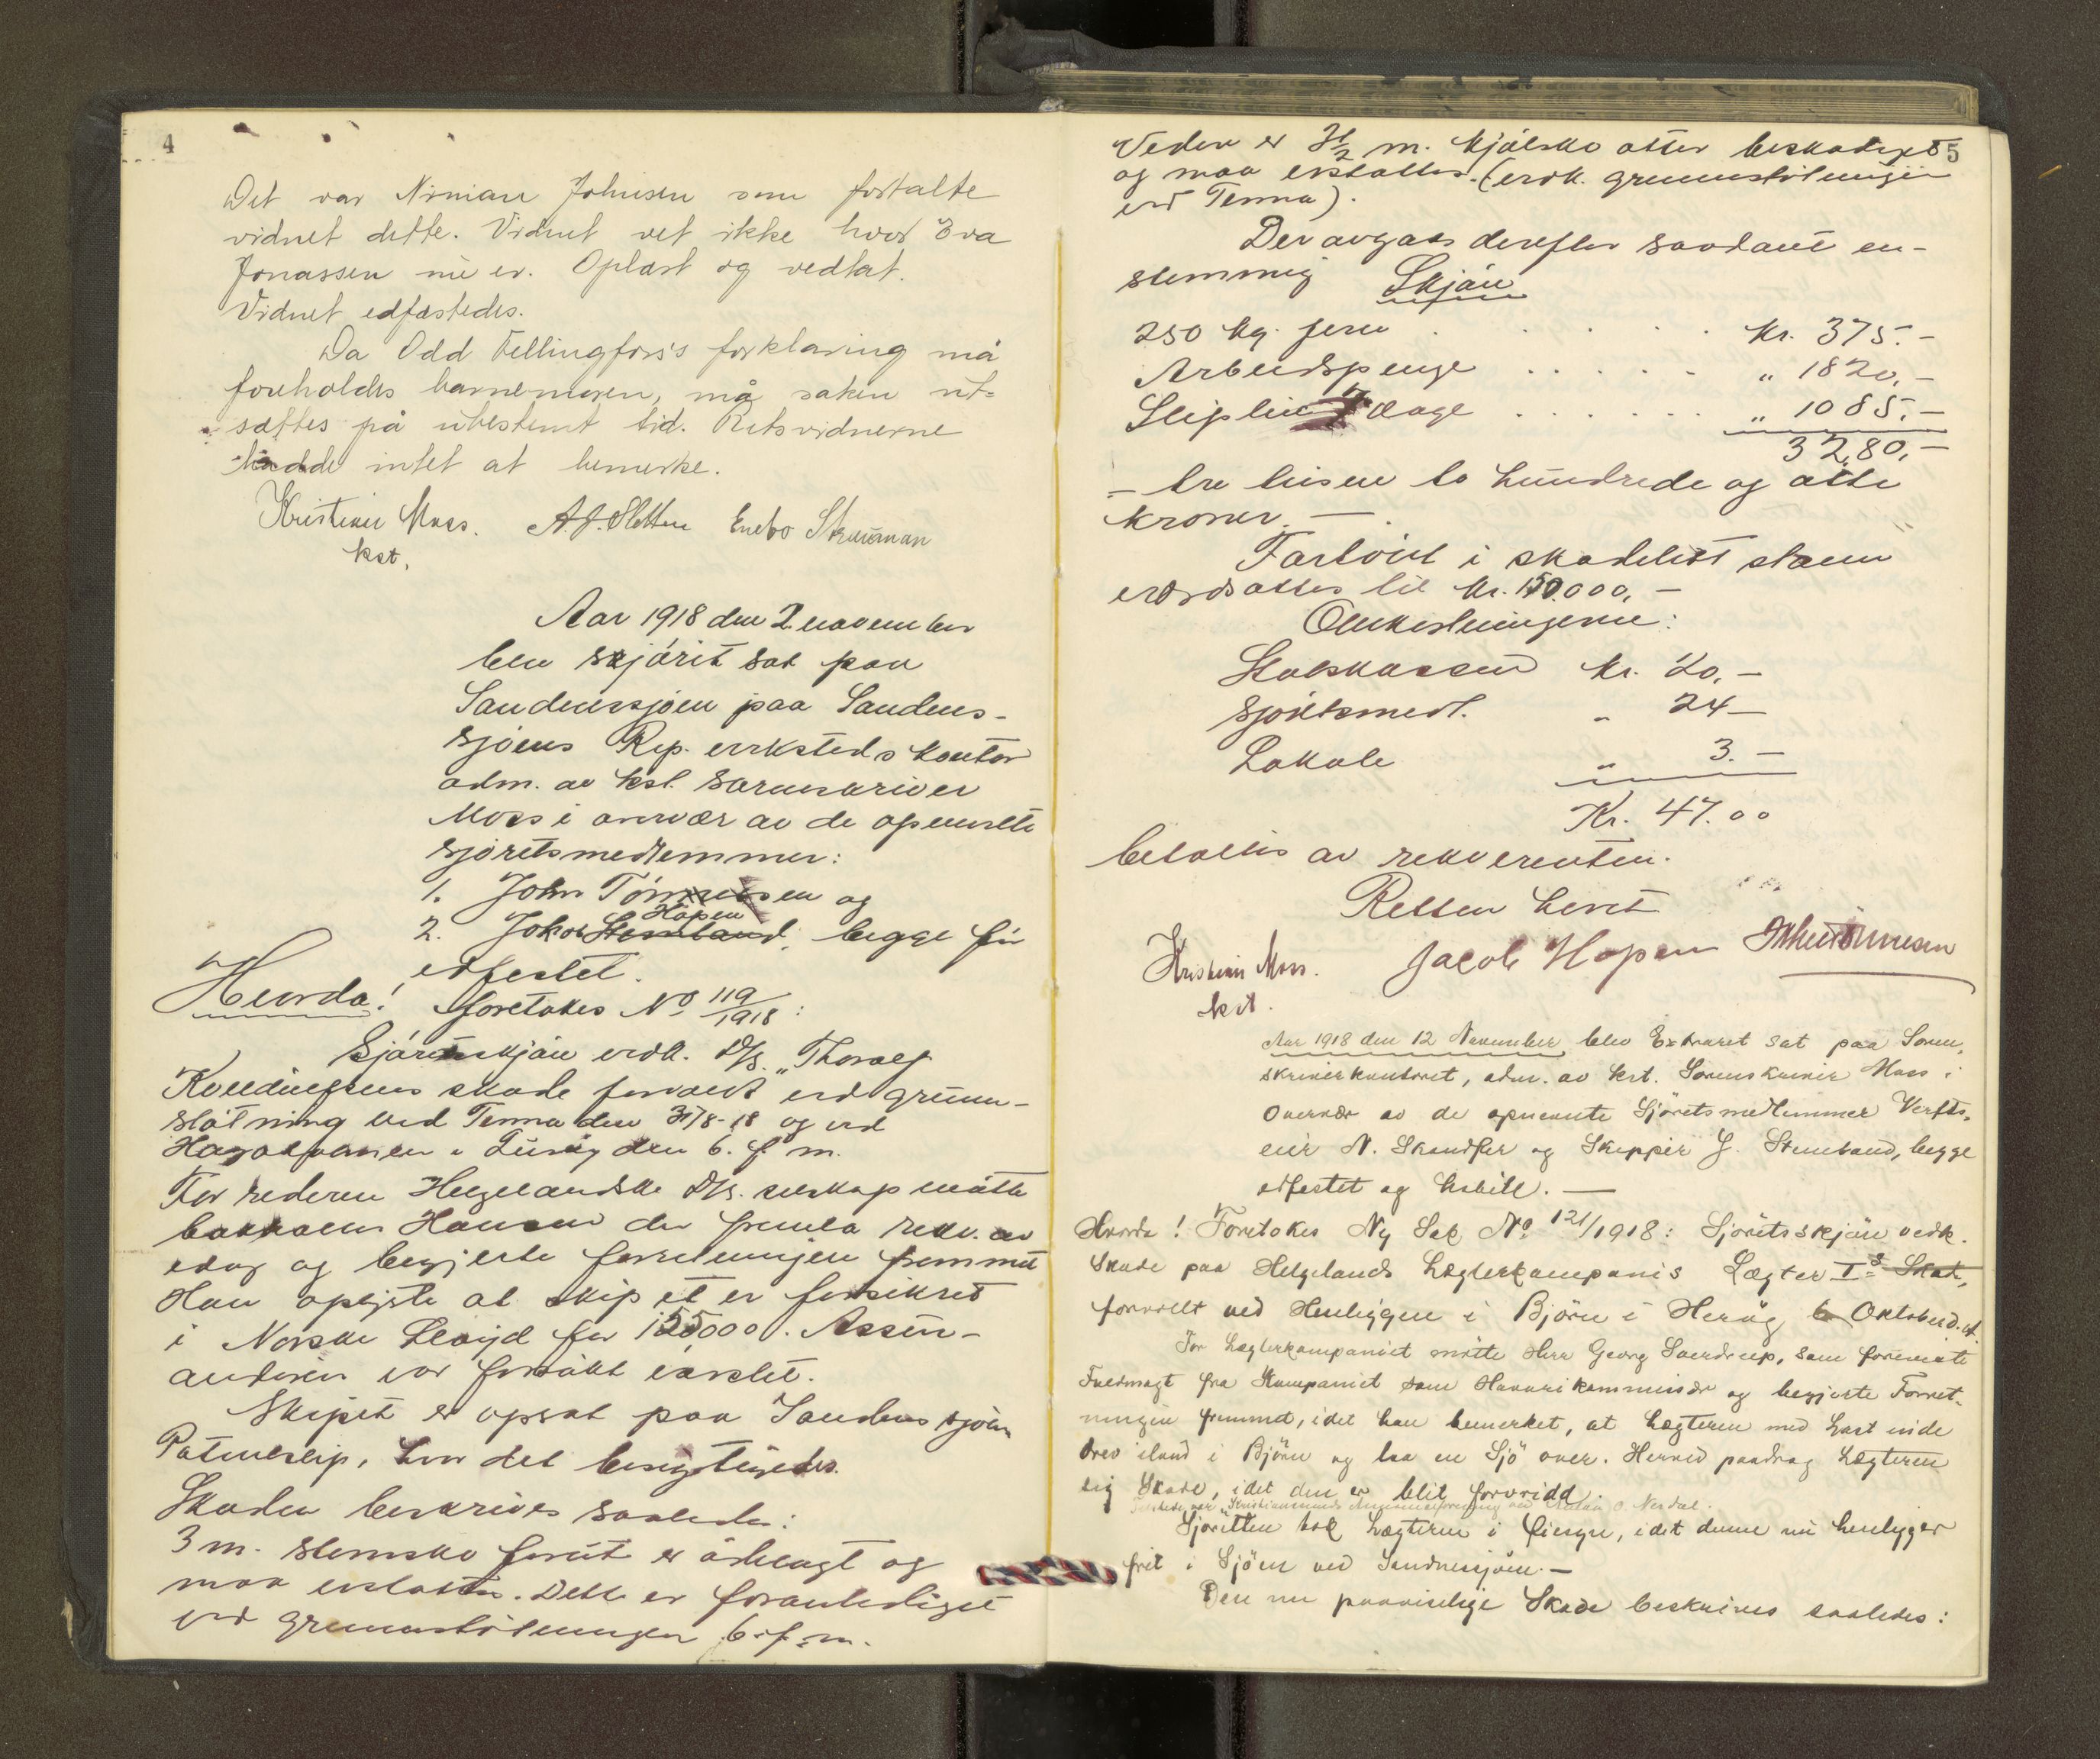 4
Det var Nimian Johnsen som fortalte
vidnet dette. Vidnet vet ikke hvor Eva
Jonassen nu er. Oplæst og vedtat.
Vidnet edfæstedes.
Da Odd Vellingfors's forklaring må
foreholdes barnemoren, må saken ut-
sættes på ubestemt tid. Retsvidnerne
hadde intet at bemerke.
Kristian Moss. A.J. Sletten Enebo Skausman
kst.
Aar 1918 den 2 november
blev sjøret sat paa
Sandnessjøen paa Sandnes-
sjøens Rep. verksteds kontor
adm. av kst. sorenskriver
Moss i overvær av de opnævnte
sjøretsmedlemmer:
1. John Tønnesen og
2. Jakob Stemland Hopen, begge før
edfestet.
Hvorda! Foretokes No 119/1918:
Sjøretsskjøn vedk. D/S. "Thorolf
Kveldulfsens skade forvoldt ved grunn-
støtning ved Tenna den 31/8-18 og ved
i Lurøy den 6. f. m.
For rederen Helgelandske D/S. selskap møtte
Hansen der fremla rekv. av
idag og begjerte forretningen fremmet
Han oplyste at skipet er forsikret
i Norske Lloyd for 155000. Assur-
andøren var forsøkt varslet.
Skipet er opsat paa Sandnessjøen
Patentslip, hvor det besigtigedes.
Skaden beskrives saaledes:
3 m. stemsko forut er ødelagt og
maa erstattes. Dette er foranlediget
ved grunnstøtningen 6. f. m.
5
Videre er 3 1/2 m. kjølsko atter beskadiget
og maa erstattes. (vedk. grunnstøtningen
ved Tenna).
Der avgaas derefter saadant en-
stemmig Skjøn
250 kg. jern . . . . . kr. 375.-
Arbeidspenge . . . . . " 1820,-
Slipleie 7 dage . . . . . . " 1085.-
3280,-
- tre tusen to hundrede og åtti
kroner. —
Fartøiet i skadelidt stann
verdsattes til kr. 150.000,-
Omkostningerne:
Statskassen kr. 20,-
Sjøretsmedl. " 24-
Lokale " 3.-
Kr. 47.00
betaltes av rekvirenten.
Retten hevet
Kristian Moss. Jacob Hopen
kst.
Aar 1918 den 12 November blev Extraret sat paa Soren-
skriverkontoret, adm. av kst. Sorenskriver Moss i
Overvær av de opnevnte Sjøretsmedlemmer Verfts-
eier N. Skandfer og Skipper J. Stemland, begge
edfestet og habill. —
Hvorda! Foretokes Ny Sak No 121/1918: Sjøretsskjøn vedk.
Skade paa Helgelands Lægterkompanis Lægter I's Skad,
forvoldt ved Henliggen i Bjørn i Herøy 6 Oktober d. A.
For Lægterkompaniet møtte Herr Georg Sverdrup, som foreviste
Fuldmagt fra Kompaniet som Havarikommissær og begjerte Forret-
ningen fremmet, idet han bemerket, at Lægteren med Last inde
drev iland i Bjørn og laa en Sjø over. Herved paadrog Lægteren
sig Skade, idet den er blit forvridd.
Sjøretten tok Lægteren i Øiesyn, idet denne nu henligger
frit i Sjøen ved Sandnessjøen. —
Den nu paaviselige Skade beskrives saaledes: